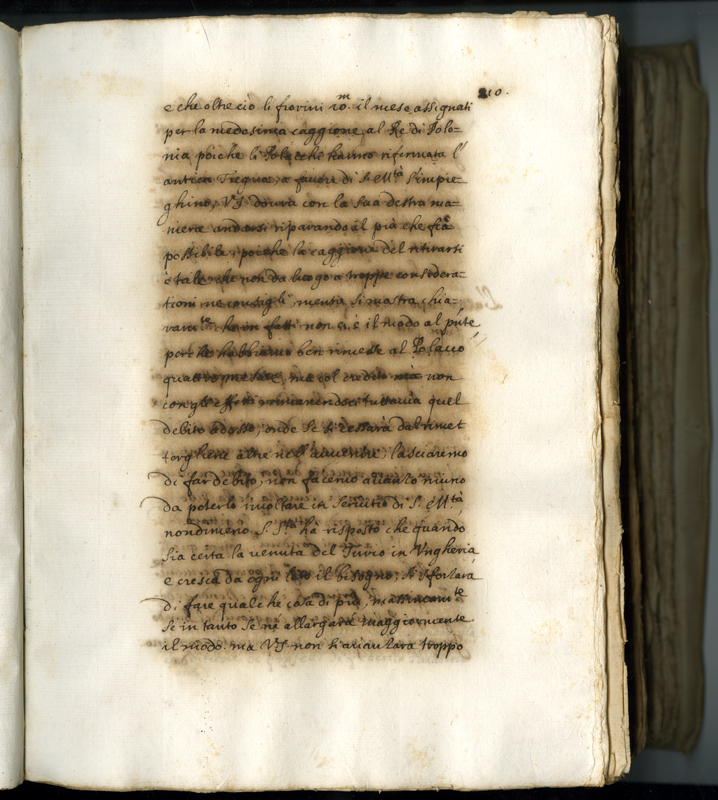 210.
e che oltre ciò li fiorini 10.m il mese assignati
per la medesima caggione al Re di Polo=
nia poiche li Polacchi hanno rifermata l'
antica Tregua, a favore di S. Mtà s'impie=
ghino, VS dovrà con la sua destra ma=
niera andarsi riparando al più che fia
possibile, poiche la caggione del ritirarsi
è tale che non dà luogo a troppe considera=
tioni ne consigli, mentre si mostra chia=
ramte che in fatti non ci è il modo al pnte
perche habbiamo ben rimesse al Polacco
quattro mesate, ma col credito mà non
con gli effetti rimanendoci tuttavia quel
debito adosso, onde se si cessarà dal rimet
torghiene altre nell'avvenire, lasciaremo
di far debito, non facemo avanzo niuno
da poterlo imoltare in servitio di S. Mtà,
nondimeno S. Stà hà risposto che quando
sia certa la venuta del Turco in Ungheria
e cresca da ogni lato il bisogno, si sforzarà
di fare qualche cosa di più, massimamte
se in tanto se ne allargarà maggiormente
il modo. ma VS non s'avanzarà troppo